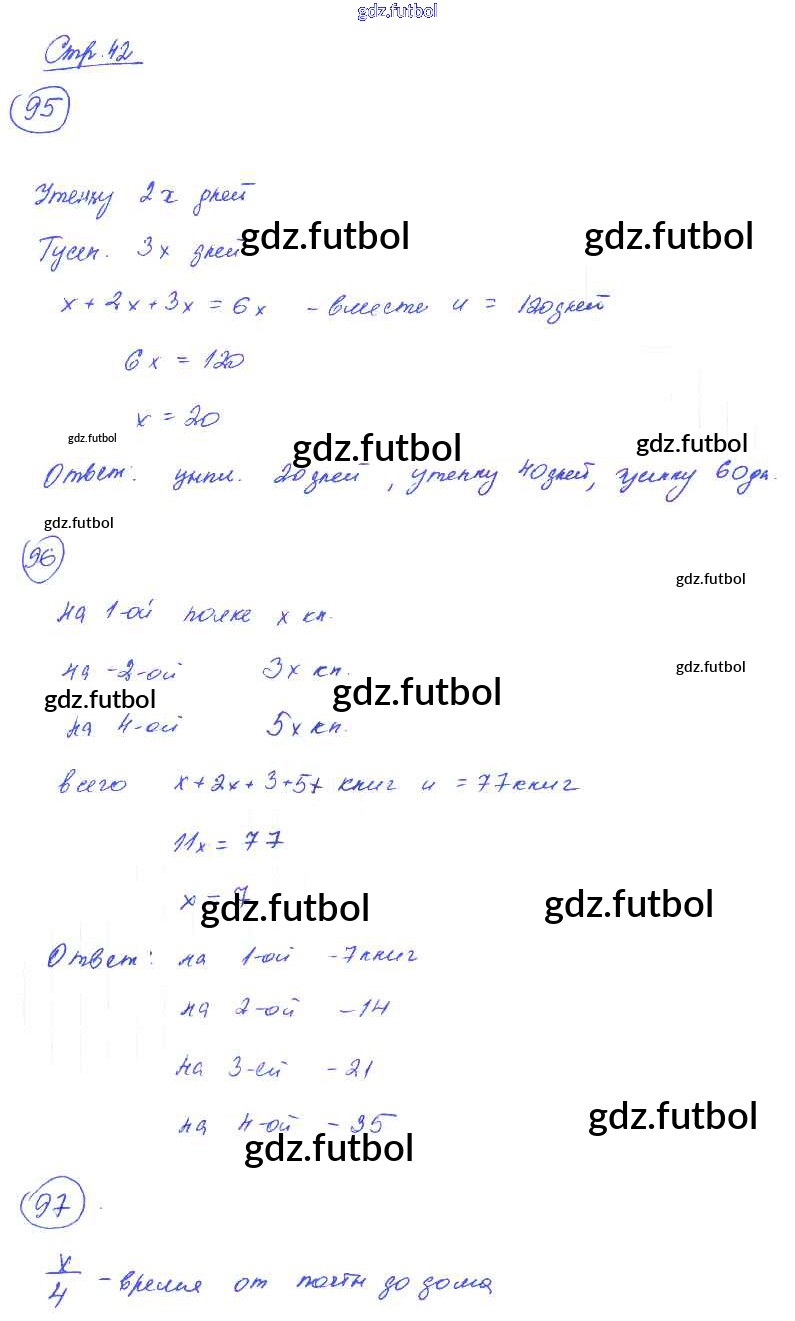 gdz.futbol
Стр. 42
95
Утенку 2х дней
Гусен. 3х дней gdz.futbol gdz.futbol
х + 2х + 3х = 6х - вместе и = 120 дней
6х = 120
х = 20
gdz.futbol gdz.futbol gdz.futbol
Ответ: цыпл. 20 дней, утенку 40 дней, гусенку 60 дн.
gdz.futbol
96
gdz.futbol
на 1-ой полке х кн.
на -2-ой 3х кн. gdz.futbol
gdz.futbol gdz.futbol
на 4-ой 5х кн.
всего х + 2х + 3 + 5+ книг и = 77 книг
11х = 77
х = 7
gdz.futbol gdz.futbol
Ответ: на 1-ой - 7 книг
на 2-ой - 14
на 3-ей - 21
gdz.futbol
на 4-ой - 35
gdz.futbol
97
х/4 - время от почты до дома